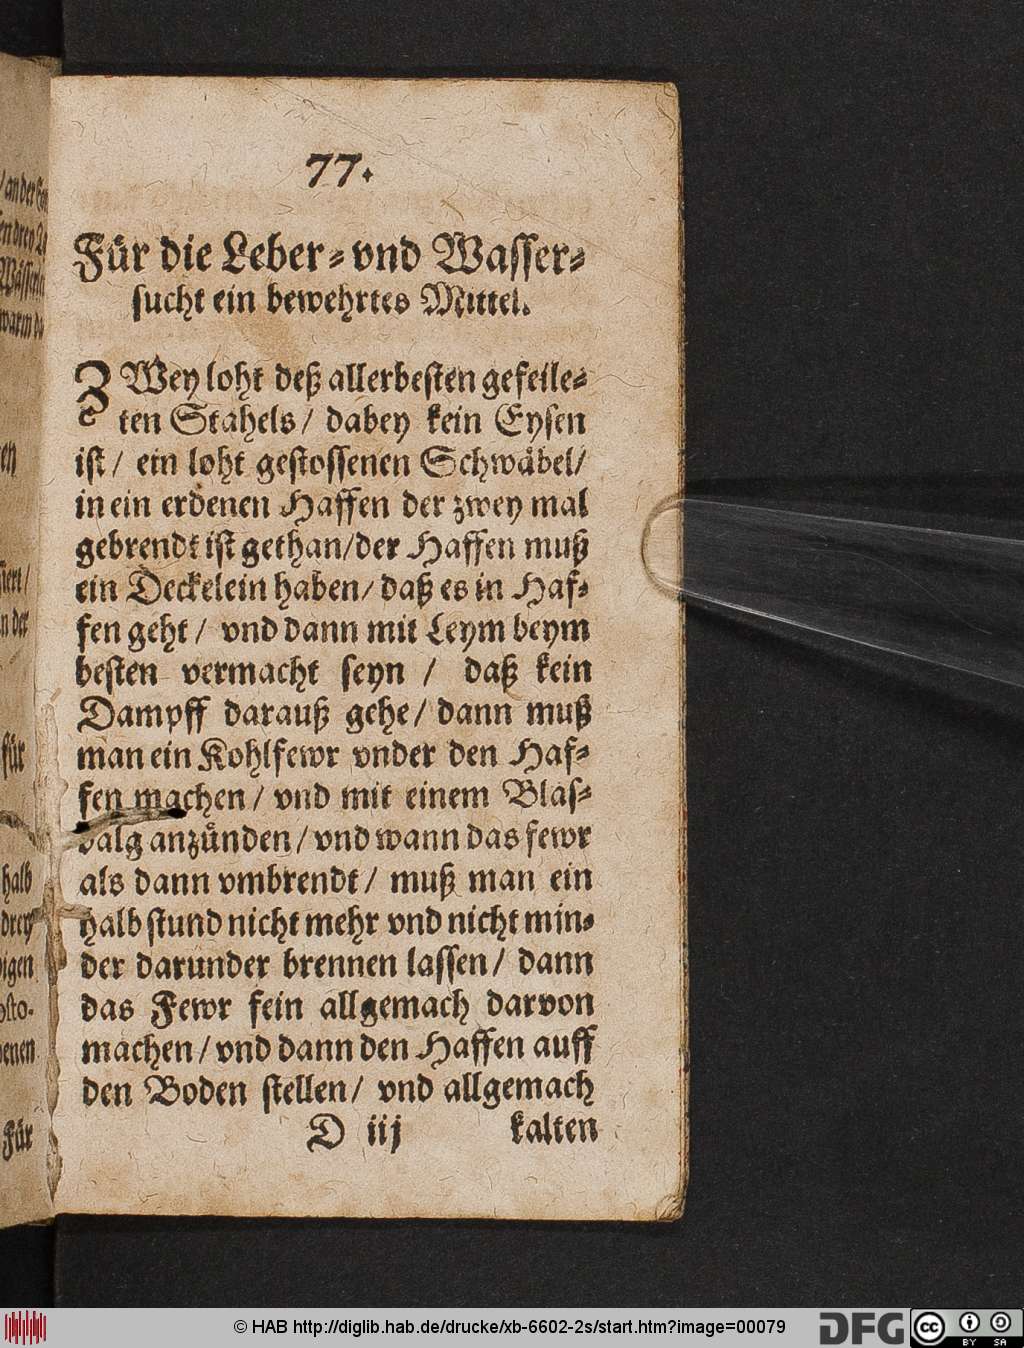 77.
Für die Leber- vnd Wasser-
sucht ein bewehrtes Mittel.
ZWey loht deß allerbesten gefeile-
ten Stahels / dabey kein Eysen
ist / ein loht gestossenen Schwäbel /
in ein erdenen Haffen der zwey mal
gebrendt ist gethan / der Haffen muß
ein Deckelein haben / daß es in Haf-
fen geht / vnd dann mit Leym beym
besten vermacht seyn / daß kein
Dampff darauß gehe / dann muß
man ein Kohlfewr vnder den Haf-
fen machen / vnd mit einem Blas-
balg anzünden / vnd wann das fewr
als dann vmbrendt / muß man ein
halb stund nicht mehr vnd nicht min-
der darunder brennen lassen / dann
das Fewr fein allgemach darvon
machen / vnd dann den Haffen auff
den Boden stellen / vnd allgemach
D iij kalten
für
halb
drey
Für
© HAB http://diglib.hab.de/drucke/xb-6602-2s/start.htm?image=00079
DFG
cc BY SA